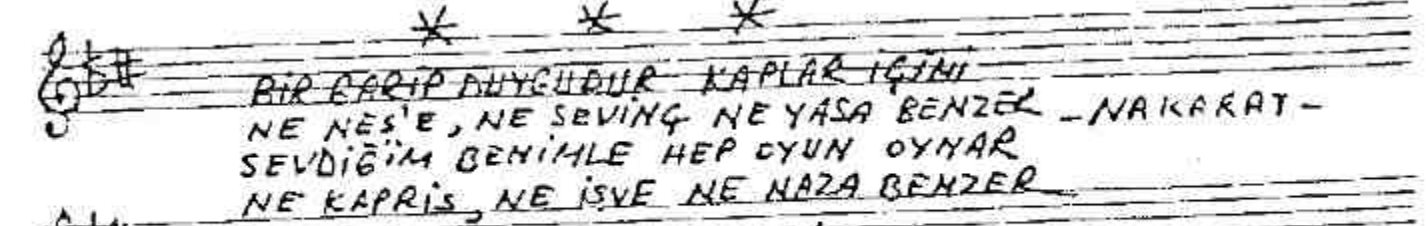 * * *
BİR GARİP DUYGUDUR KAPLAR İÇİMİ
NE NEŞ'E, NE SEVİNÇ NE YASA BENZER - NAKARAT -
SEVDİĞİM BENİMLE HEP OYUN OYNAR
NE KAPRİS, NE İŞVE NE NAZA BENZER